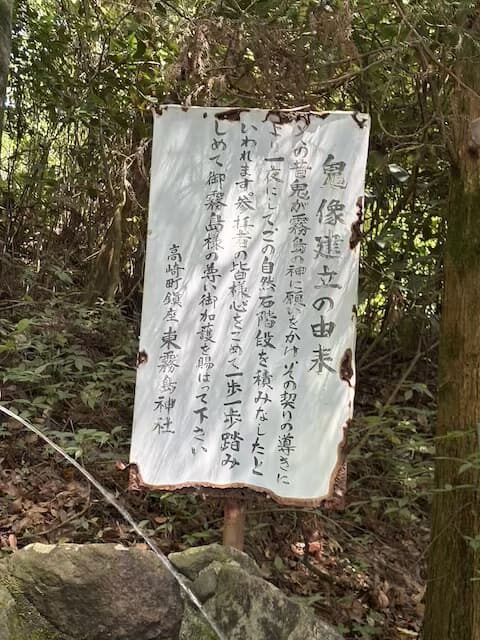 鬼像建立の由来
その昔鬼が霧島の神に願いをかけ、その契りの導きに
より一夜にしてこの自然石階段を積みなしたと
いわれます。参拝者の皆様心をこめて一歩一歩踏み
しめて御霧島様の尊い御加護を賜はって下さい
高崎町鎮座 東霧島神社